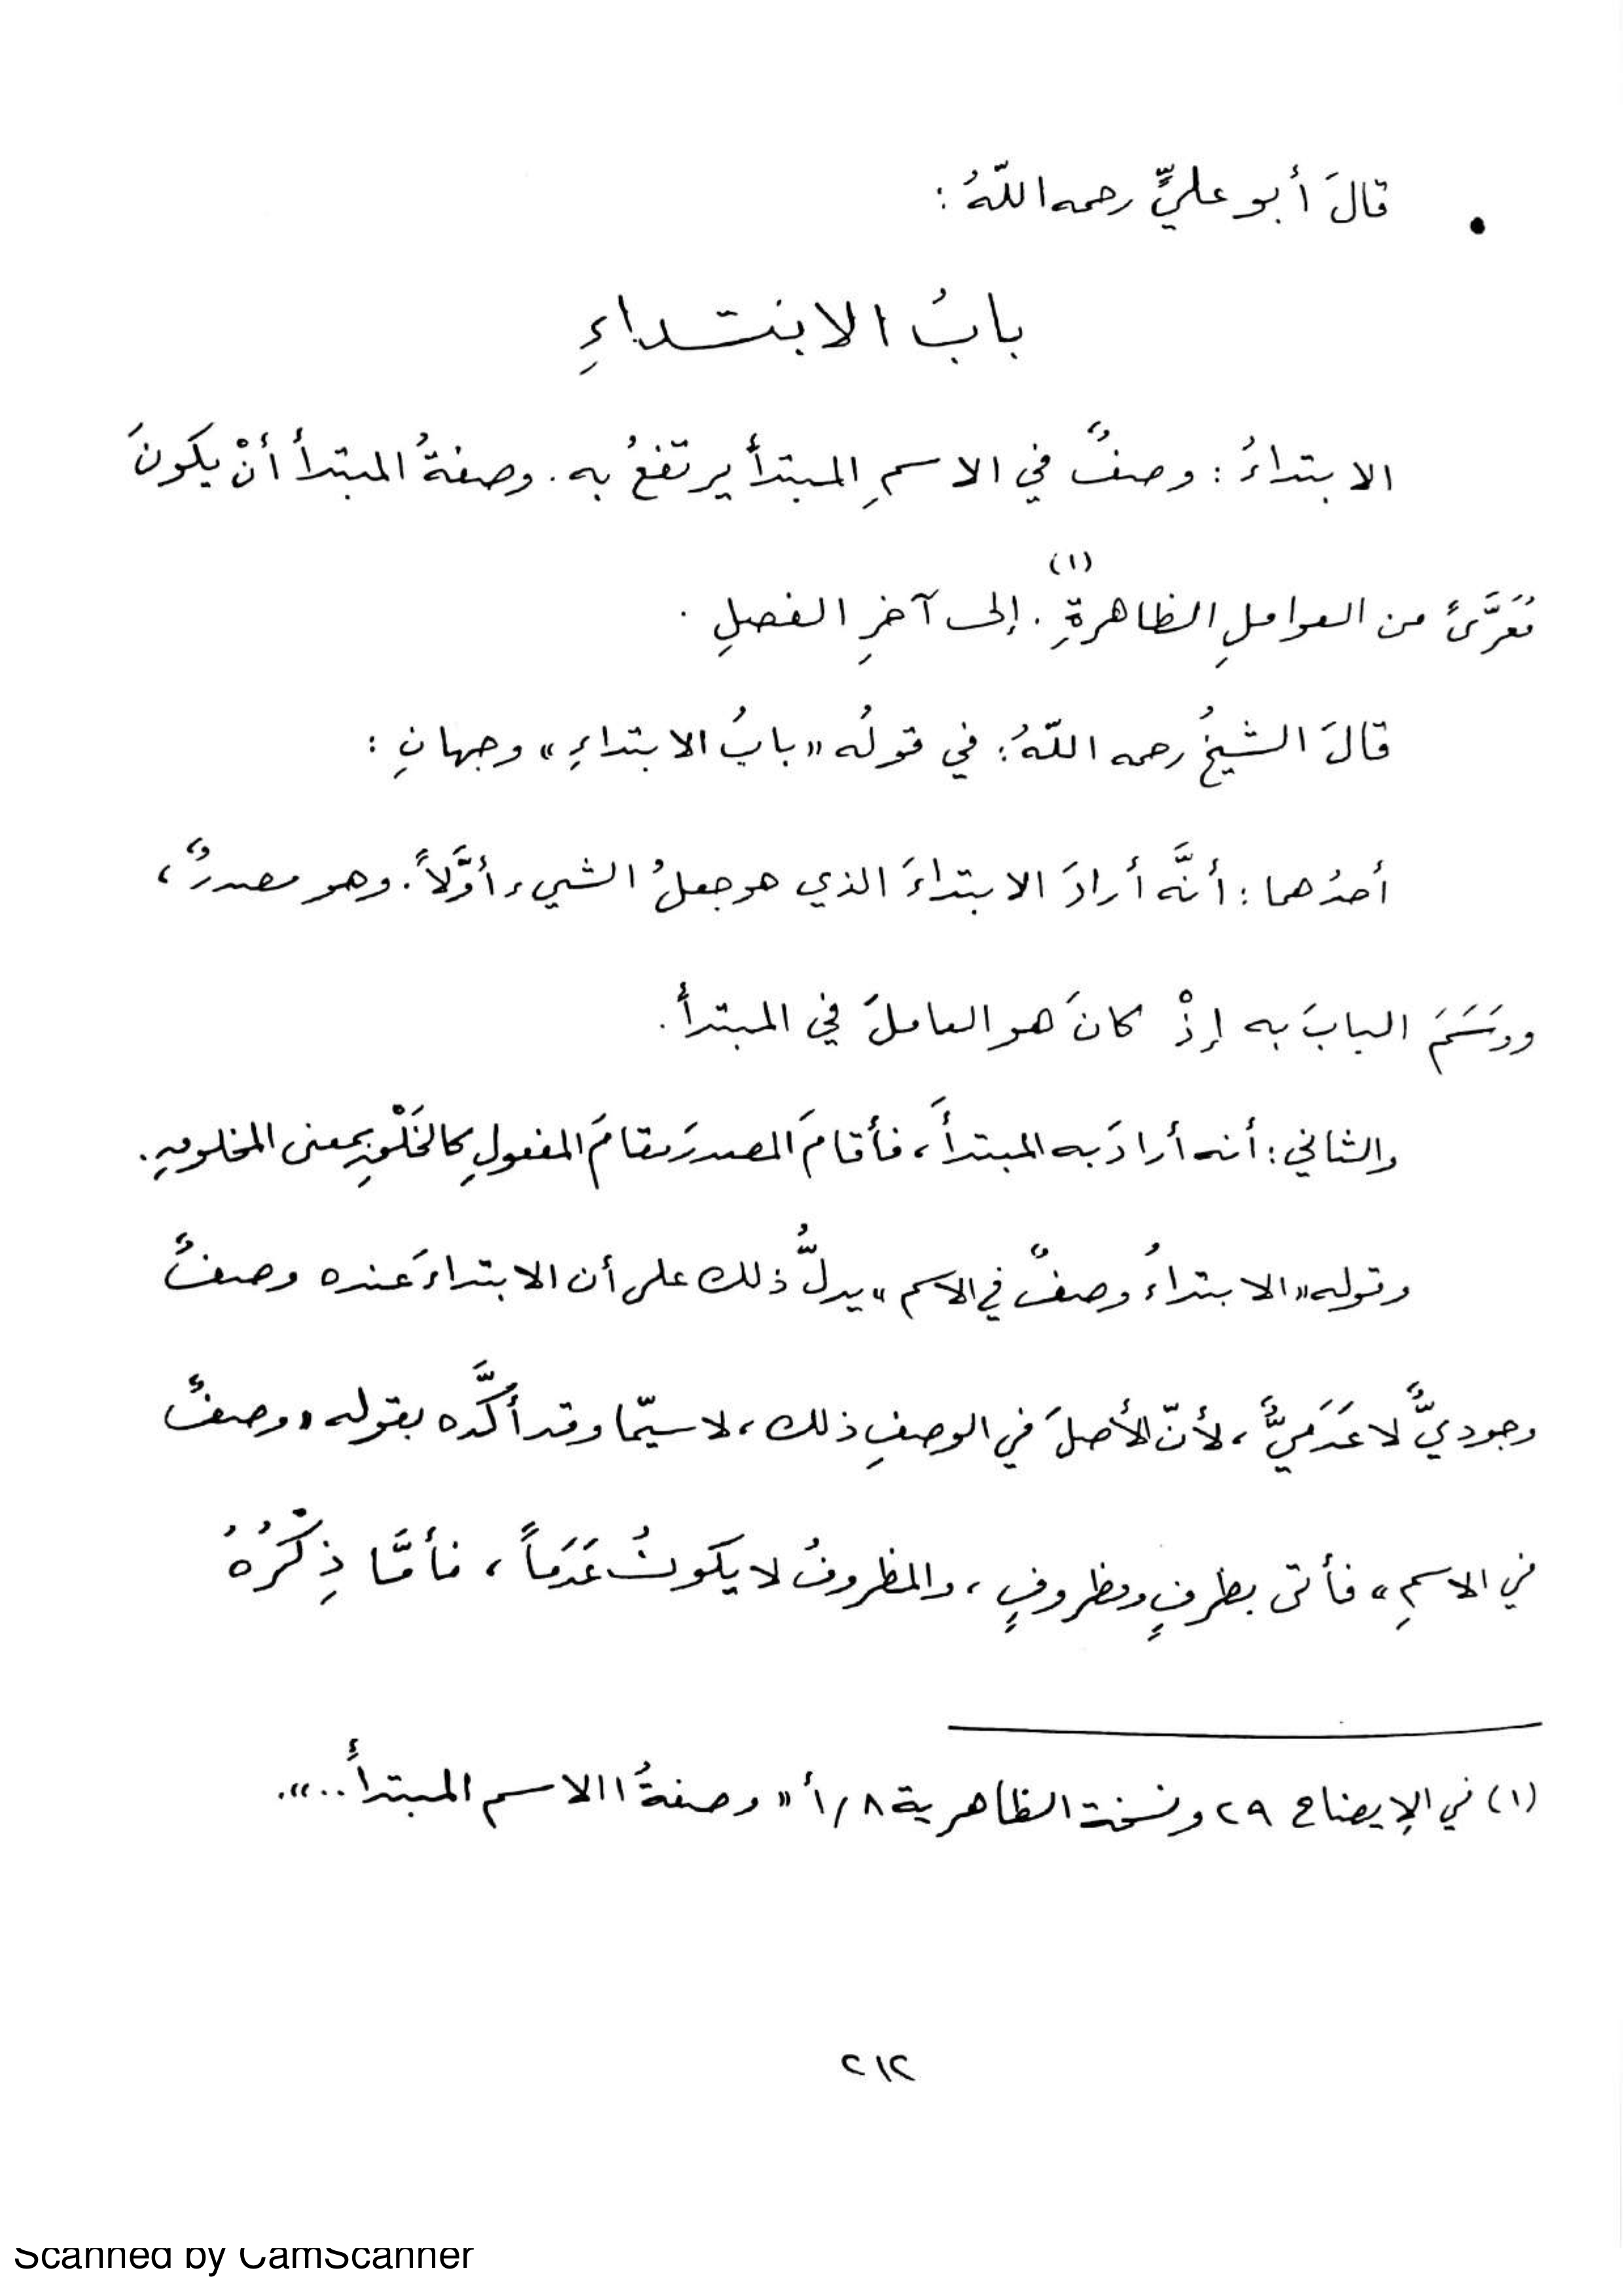 • قالَ أبو عليٍّ رحمه اللّهُ :
بابُ الابتداءِ
الابتداءُ : وصفٌ في الاسمِ المبتدأ يرتفعُ به . وصفةُ المبتدأ أنْ يكونَ
مُعَرَّىً من العواملِ الظاهرةِ (١) . إلى آخرِ الفصلِ .
قالَ الشيخُ رحمه اللّهُ : في قولُه « بابُ الابتداءِ » وجهانِ :
أحدُهما : أنَّه أرادَ الابتداءَ الذي هو جعلُ الشيء أوَّلاً . وهو مصدرٌ ،
ووَسَمَ البابَ به إذْ كانَ هو العاملَ في المبتدأ .
والثاني : أنه أرادَ به المبتدأَ ، فأقامَ المصدرَ مقامَ المفعولِ كالخَلْقِ بمعنى المخلوقِ .
وقوله « الابتداءُ وصفٌ في الاسم » يدلُّ ذلك على أن الابتداءَ عنده وصفٌ
وجوديٌّ لا عَدَميٌّ ، لأنّ الأصلَ في الوصفِ ذلك ، لا سيّما وقد أكَّده بقوله « وصفٌ
في الاسمِ » فأتى بظرفٍ ومظروفٍ ، والمظروفُ لا يكونُ عَدَماً ، فأمَّا ذِكْرُهُ
(١) في الإيضاح ٢٩ ونسخة الظاهرية ٨/أ « وصفةُ االاسم المبتدأ .. » .
٢١٢
Scanned by CamScanner